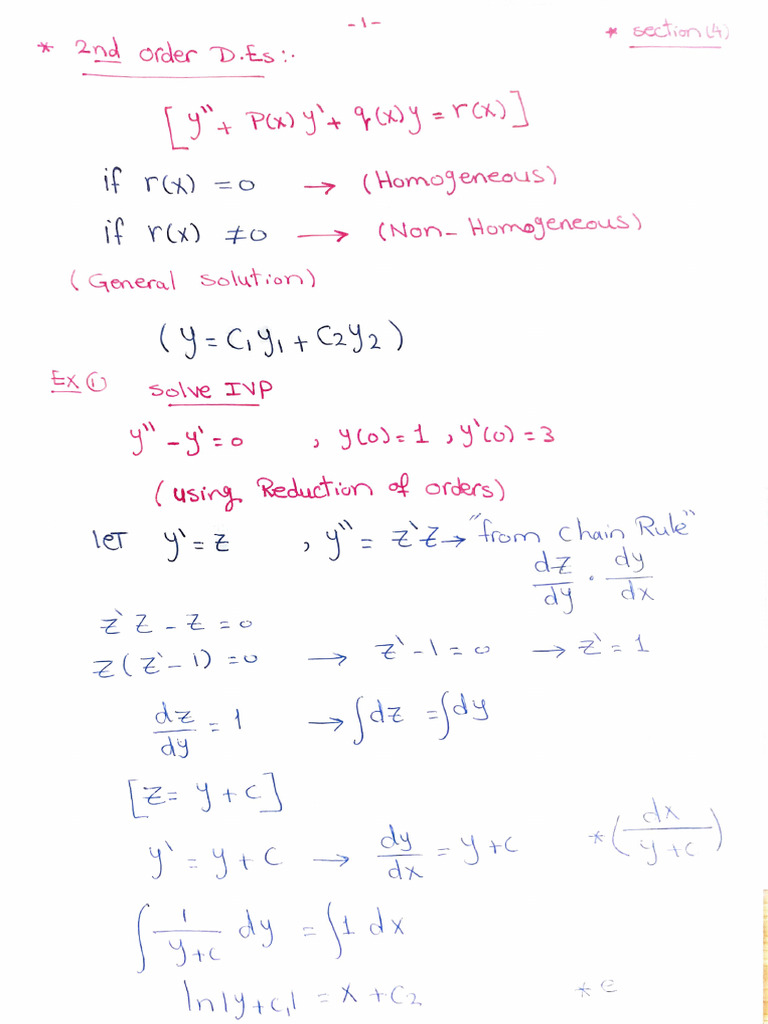 -1-
* section(4)
* 2nd order D.Es:.
[y'' + P(x) y' + q(x) y = r(x)]
if r(x) = 0 → (Homogeneous)
if r(x) ≠ 0 → (Non-Homogeneous)
(General solution)
(y = C₁y₁ + C₂y₂)
Ex ① solve IVP
y'' - y' = 0 , y(0) = 1 , y'(0) = 3
(using Reduction of orders)
let y' = z , y'' = z'z → "from Chain Rule"
dz/dy · dy/dx
z'z - z = 0
z(z' - 1) = 0 → z' - 1 = 0 → z' = 1
dz/dy = 1 → ∫dz = ∫dy
[z = y + c]
y' = y + c → dy/dx = y + c *(dx/y+c)
∫ 1/y+c dy = ∫1 dx
ln|y+c₁| = x + c₂ * e